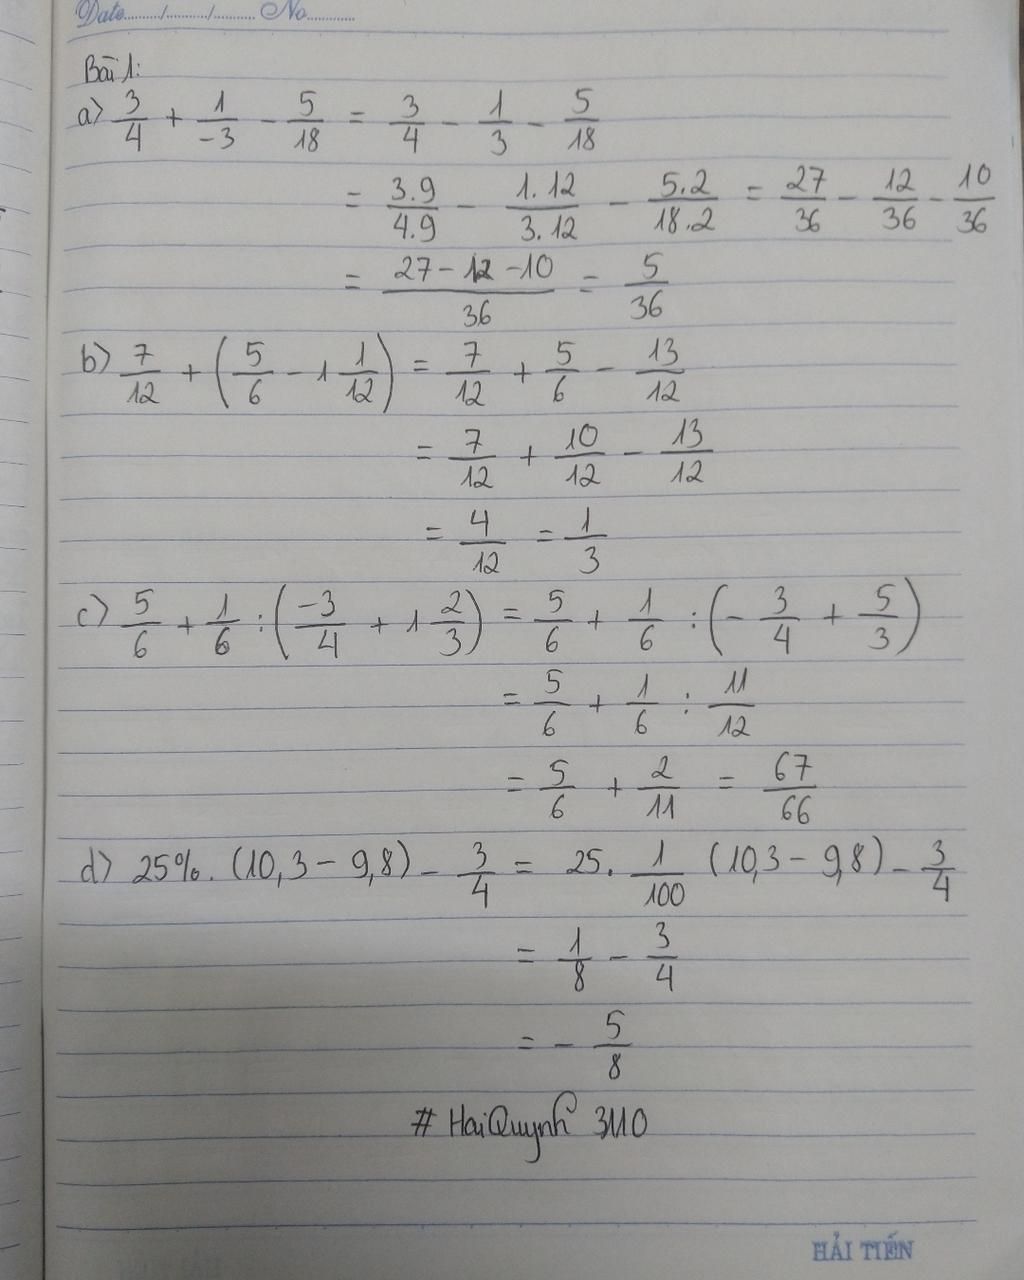 Date......../......../........ No...........
Bài 1:
a) 3/4 + 1/-3 - 5/18 = 3/4 - 1/3 - 5/18
= 3.9/4.9 - 1.12/3.12 - 5.2/18.2 = 27/36 - 12/36 - 10/36
= 27-12-10/36 = 5/36
b) 7/12 + (5/6 - 1 1/12) = 7/12 + 5/6 - 13/12
= 7/12 + 10/12 - 13/12
= 4/12 = 1/3
c) 5/6 + 1/6 : (-3/4 + 1 2/3) = 5/6 + 1/6 : (- 3/4 + 5/3)
= 5/6 + 1/6 : 11/12
= 5/6 + 2/11 = 67/66
d) 25%. (10,3 - 9,8) - 3/4 = 25. 1/100 (10,3 - 9,8) - 3/4
= 1/8 - 3/4
= - 5/8
# HaiQuynh 3110
HẢI TIẾN